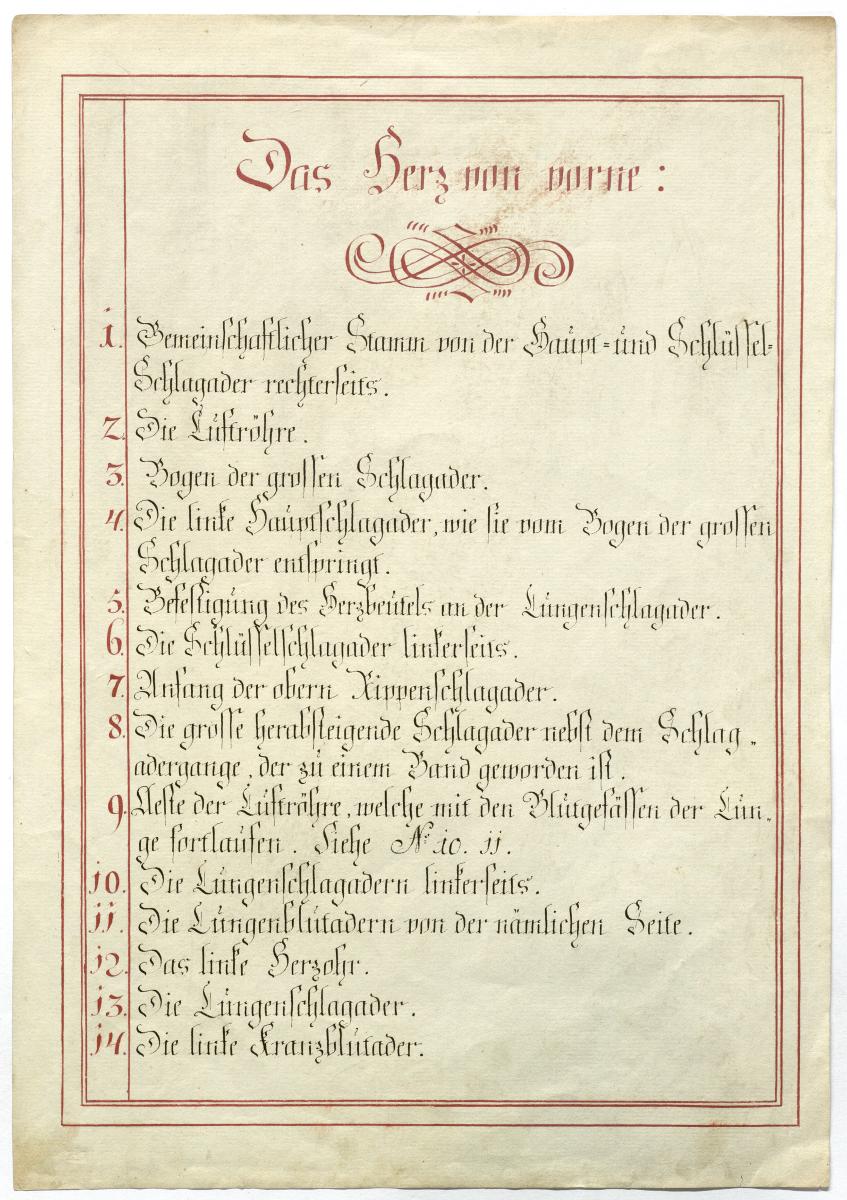 Das Herz von vorne:
1. Gemeinschaftlicher Stamm von der Haupt- und Schlüssel-
Schlagader rechterseits.
2. Die Luftröhre.
3. Bogen der grossen Schlagader.
4. Die linke Hauptschlagader, wie sie vom Bogen der grossen
Schlagader entspringt.
5. Befestigung des Herzbeutels an der Lungenschlagader.
6. Die Schlüsselschlagader linkerseits.
7. Anfang der obern Rippenschlagader.
8. Die grosse herabsteigende Schlagader nebst dem Schlag„
adergange, der zu einem Band geworden ist.
9. Aeste der Luftröhre, welche mit den Blutgefässen der Lun„
ge fortlaufen. Siehe No 10. 11.
10. Die Lungenschlagadern linkerseits.
11. Die Lungenblutadern von der nämlichen Seite.
12. Das linke Herzohr.
13. Die Lungenschlagader.
14. Die linke Kranzblutader.